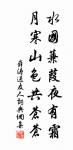 水國蒹葭夜有霜
月寒山色共蒼蒼
薛濤送友人詩共儷書